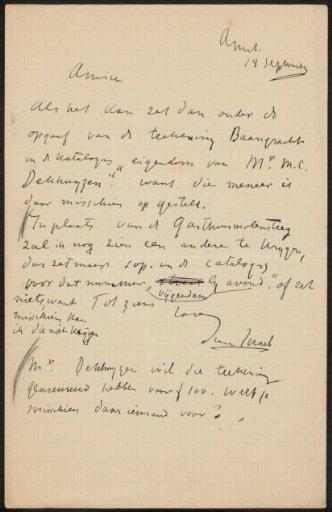 Amst.
18 September
Amice
Als het kan zet dan onder de
opgaaf van de teekening Baangracht
in de katalogus "eigendom van Mr. M.C.
Dekhuyzen." want die meneer is
daar misschien op gesteld.
In plaats van de Gasthuismolensteeg
zal ik nog zien een andere te krijgen,
dus zet maar s.v.p. in de catalogus
voor dat nummer " bij avond." of zet
Vijgendam
niets want Tot ziens
misschien kan
ik die niet krijgen
Isaac Israels
Mr. Dekhuyzen wil die teekening
geassureerd hebben voor f 100. Weet je
misschien daar iemand voor?